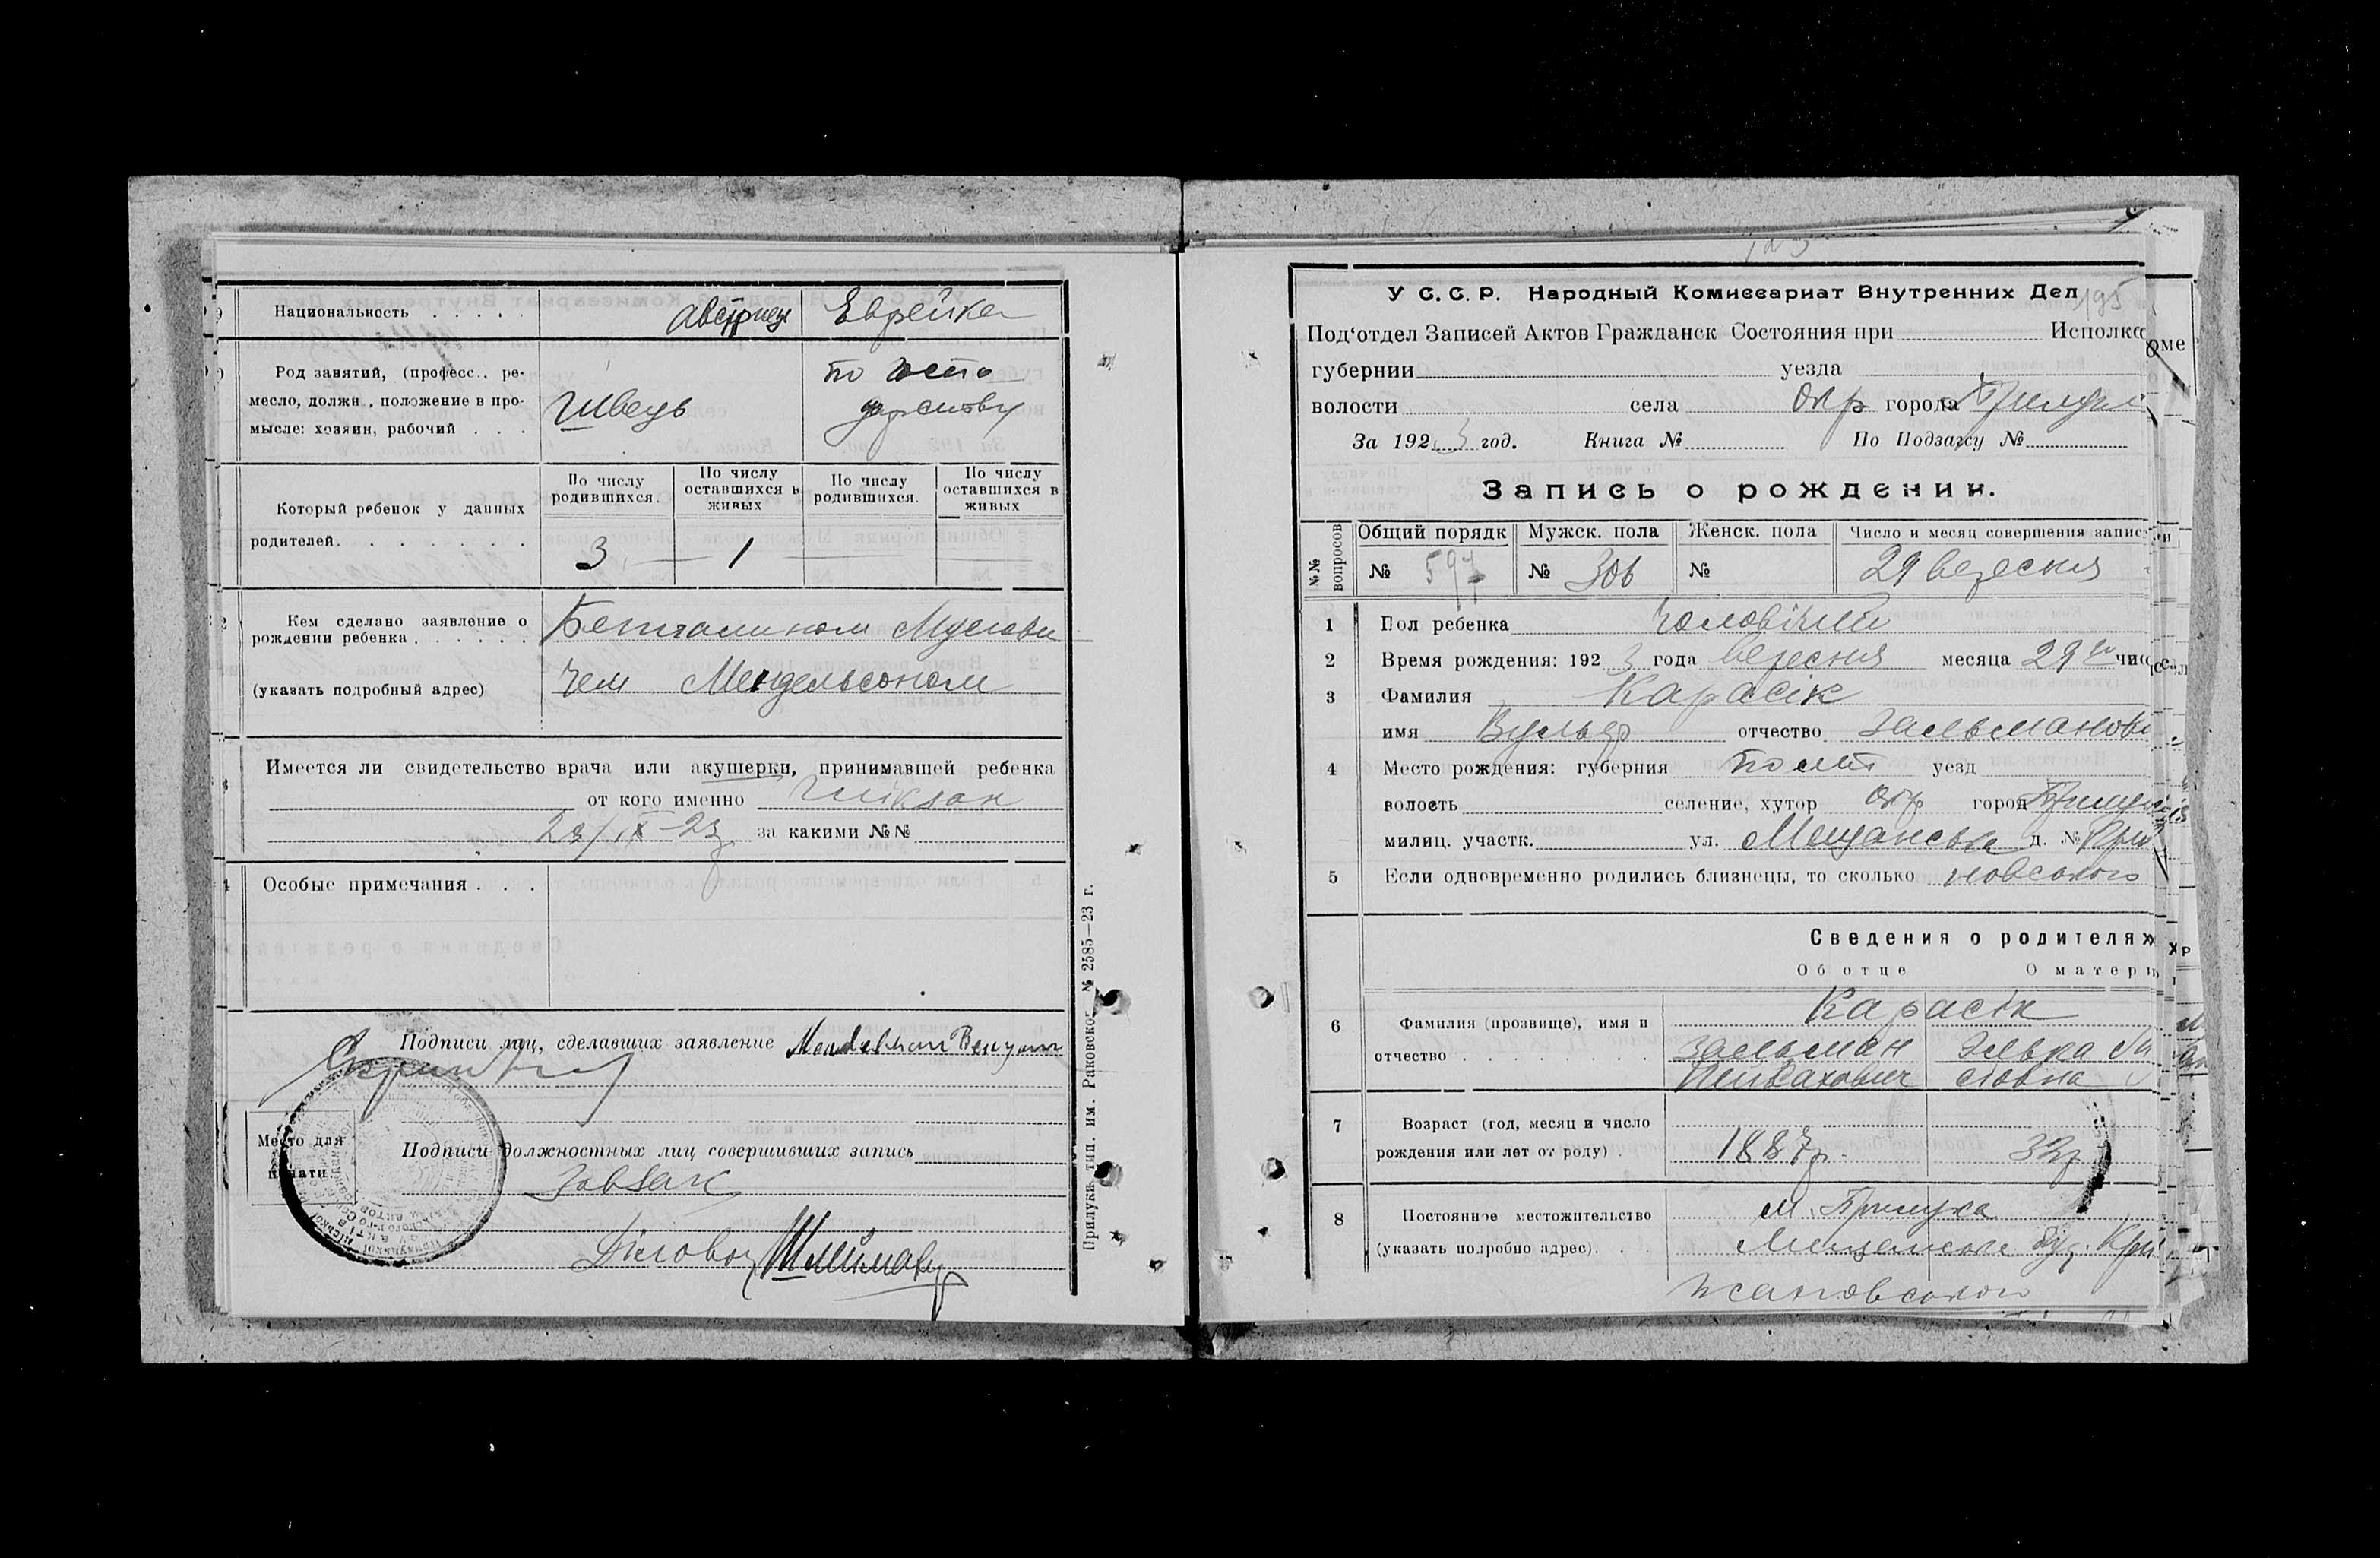 Национальность . . . . . австриец Еврейка
Род занятий, (професс., ре-
месло, должн., положение в про-
мысле: хозяин, рабочий . . .
Швець
по
Который ребенок у данных
родителей. . . . . . .
По числу родившихся.
По числу оставшихся в живых
По числу родившихся.
По числу оставшихся в живых
3 1
Кем сделано заявление о
рождении ребенка . . . . . .
(указать подробный адрес)
Мусеови
чем Мендельсоном
Имеется ли свидетельство врача или акушерки, принимавшей ребенка
от кого именно
/IX-23 за какими №№
Особые примечания . . .
Подписи лиц, сделавших заявление
Место для
печати
Подписи должностных лиц совершивших запись
Завзаг
Діловод
Прилуки, тип. им. Раковского № 2585—23 г.
195
У С. С. Р. Народный Комиссариат Внутренних Дел
Под‘отдел Записей Актов Гражданск Состояния при Исполко
губернии уезда
волости села окр города Прилук
За 192 3 год. Книга № По Подзагсу №
Запись о рождении.
№№ вопросов
Общий порядк
Мужск. пола
Женск. пола
Число и месяц совершения запис
№ № 306 № 29 вересня
1 Пол ребенка чоловічий
2 Время рождения: 192 3 года вересня месяца 29 чис
3 Фамилия Карасік
имя Вульф отчество Зальманови
4 Место рождения: губерния Полт уезд
волость селение, хутор окр город Прилук
милиц. участк. ул. Мещанська д. № Крж
5 Если одновременно родились близнецы, то сколько новського
Сведения о родителях
Об отце О матери
6 Фамилия (прозвище), имя и
отчество . . . . . . . .
Карасік
Зальман
Элька
7 Возраст (год, месяц и число
рождения или лет от роду) .
1887р. 32р
8 Постоянное местожительство
(указать подробно адрес). . .
м. Прилука
Мещанська буд. Крж
жановського